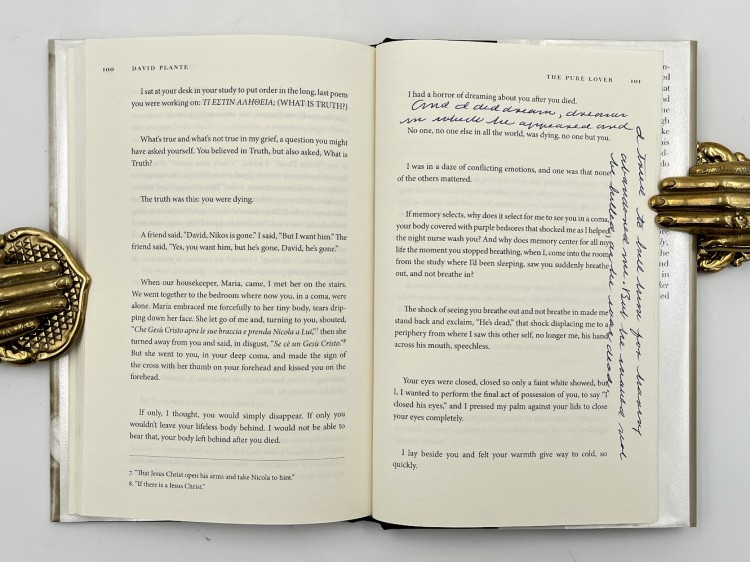 100 DAVID PLANTE
I sat at your desk in your study to put order in the long, last poem
you were working on: ΤΙ ΕΣΤΙΝ ΑΛΗΘΕΙΑ; (WHAT IS TRUTH?)
What's true and what's not true in my grief, a question you might
have asked yourself. You believed in Truth, but also asked, What is
Truth?
The truth was this: you were dying.
A friend said, "David, Nikos is gone." I said, "But I want him." The
friend said, "Yes, you want him, but he's gone, David, he's gone."
When our housekeeper, Maria, came, I met her on the stairs.
We went together to the bedroom where now you, in a coma, were
alone. Maria embraced me forcefully to her tiny body, tears drip-
ping down her face. She let go of me and, turning to you, shouted,
"Che Gesù Cristo apra le sue braccia e prenda Nicola a Lui,"7 then she
turned away from you and said, in disgust, "Se c'è un Gesù Cristo."8
But she went to you, in your deep coma, and made the sign of
the cross with her thumb on your forehead and kissed you on the
forehead.
If only, I thought, you would simply disappear. If only you
wouldn't leave your lifeless body behind. I would not be able to
bear that, your body left behind after you died.
7. "That Jesus Christ open his arms and take Nicola to him."
8. "If there is a Jesus Christ."
THE PURE LOVER 101
I had a horror of dreaming about you after you died.
And I did dream, dreams
in which he appeared and
No one, no one else in all the world, was dying, no one but you.
I was in a daze of conflicting emotions, and one was that none
of the others mattered.
If memory selects, why does it select for me to see you in a coma,
your body covered with purple bedsores that shocked me as I helped
the night nurse wash you? And why does memory center for all my
life the moment you stopped breathing, when I, come into the room
from the study where I'd been sleeping, saw you suddenly breathe
out, and not breathe in?
The shock of seeing you breathe out and not breathe in made me
stand back and exclaim, "He's dead," that shock displacing me to a
periphery from where I saw this other self, no longer me, his hand
across his mouth, speechless.
Your eyes were closed, closed so only a faint white showed, but
I, I wanted to perform the final act of possession of you, to say "I
closed his eyes," and I pressed my palm against your lids to close
your eyes completely.
I lay beside you and felt your warmth give way to cold, so
quickly.
I tried to him for having
abandoned me. But he not